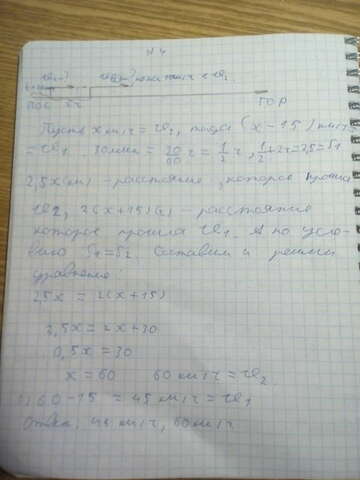 №4
ПОС
ГОР
Пусть x км/ч = v₂, тогда (x-15) км/ч
= v₁. 30мин = 30/60 ч = 1/2 ч, 1/2+2ч=2,5=t₁
2,5x(км) - расстояние, которое прошла
v₂, 2(x+15)(км) - расстояние
которое прошла v₁. А по усло-
вию S₁=S₂. Составим и решим
уравнение:
2,5x = 2(x+15)
2,5x = 2x+30
0,5x = 30
x = 60 60 км/ч = v₂
1) 60-15 = 45 км/ч = v₁
Ответ: 45 км/ч, 60 км/ч